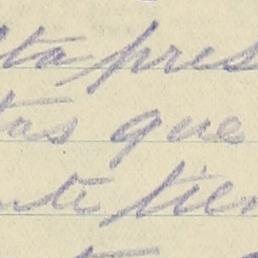 lta pres
tas que
nte tien